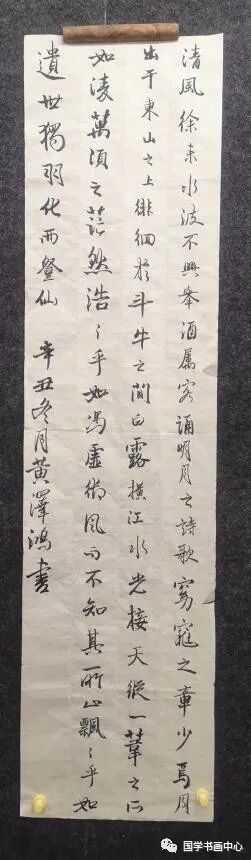 清風徐來水波不興舉酒属客誦明月之詩歌窈窕之章少焉月
出于東山之上徘徊於斗牛之間白露橫江水光接天縱一葦之所
如淩萬頃之茫然浩〻乎如馮虛御風而不知其所止飄〻乎如
遺世獨羽化而登仙 辛丑冬月黃澤鴻書
国学书画中心